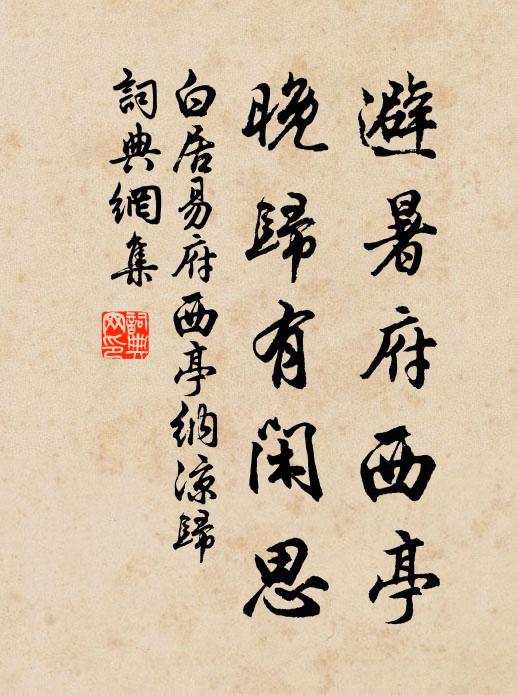 避暑府西亭
晚歸有閑思
白居易府西亭納涼歸
詞典網集
詞典網印